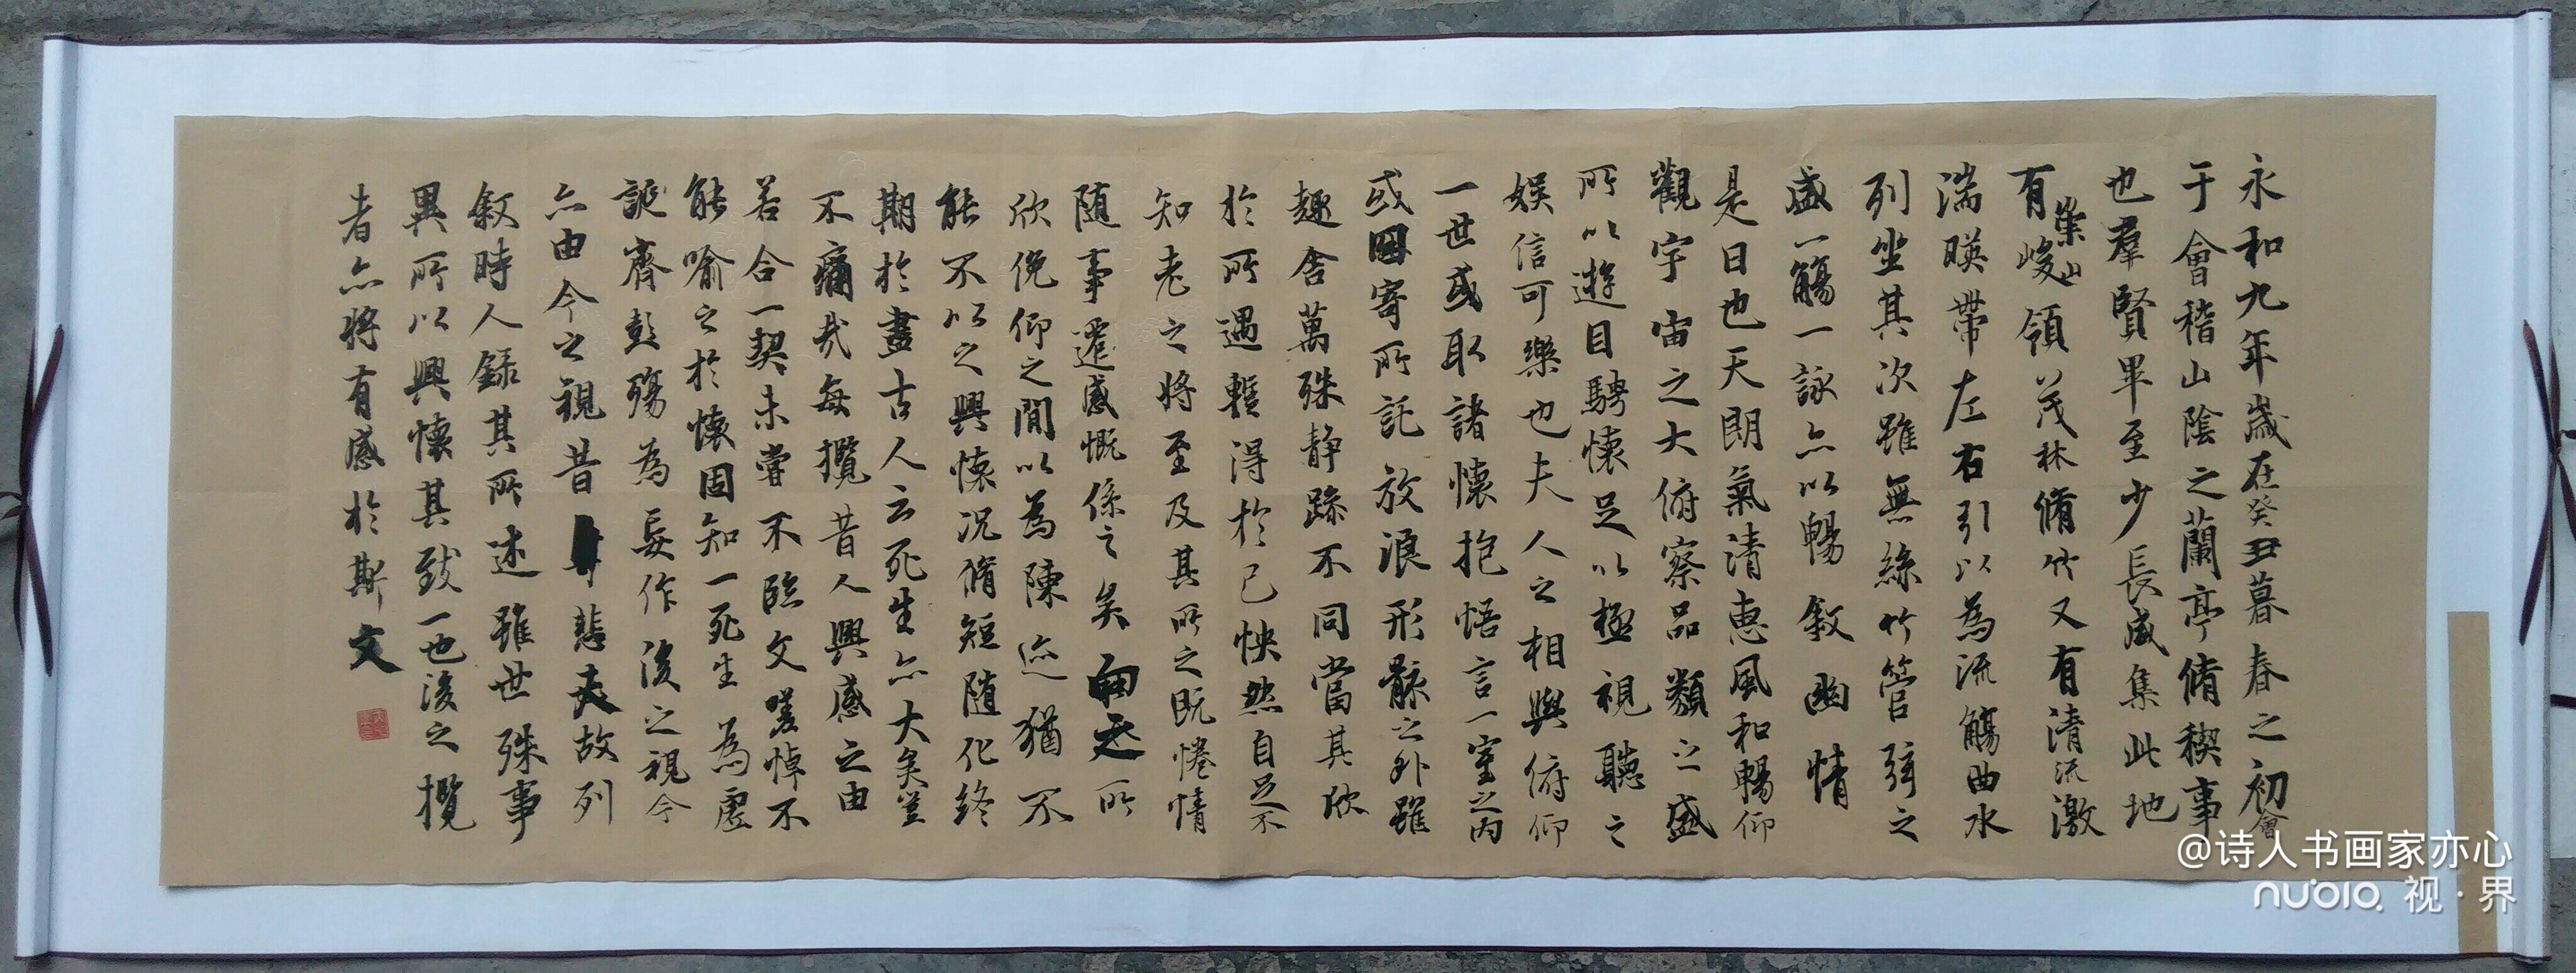 永和九年歲在癸丑暮春之初會
于會稽山陰之蘭亭脩稧事
也羣賢畢至少長咸集此地
有崇山峻領茂林脩竹又有清流激
湍暎帶左右引以為流觴曲水
列坐其次雖無絲竹管弦之
盛一觴一詠亦以暢敘幽情
是日也天朗氣清惠風和暢仰
觀宇宙之大俯察品類之盛
所以遊目騁懷足以極視聽之
娛信可樂也夫人之相與俯仰
一世或取諸懷抱悟言一室之內
或因寄所託放浪形骸之外雖
趣舍萬殊靜躁不同當其欣
於所遇暫得於己怏然自足不
知老之將至及其所之既惓情
隨事遷感慨係之矣向之所
欣俛仰之間以為陳迹猶不
能不以之興懷況脩短隨化終
期於盡古人云死生亦大矣豈
不痛哉每攬昔人興感之由
若合一契未嘗不臨文嗟悼不
能喻之於懷固知一死生為虛
誕齊彭殤為妄作後之視今
亦由今之視昔悲夫故列
敘時人錄其所述雖世殊事
異所以興懷其致一也後之攬
者亦將有感於斯文
@诗人书画家亦心
nubia 视·界